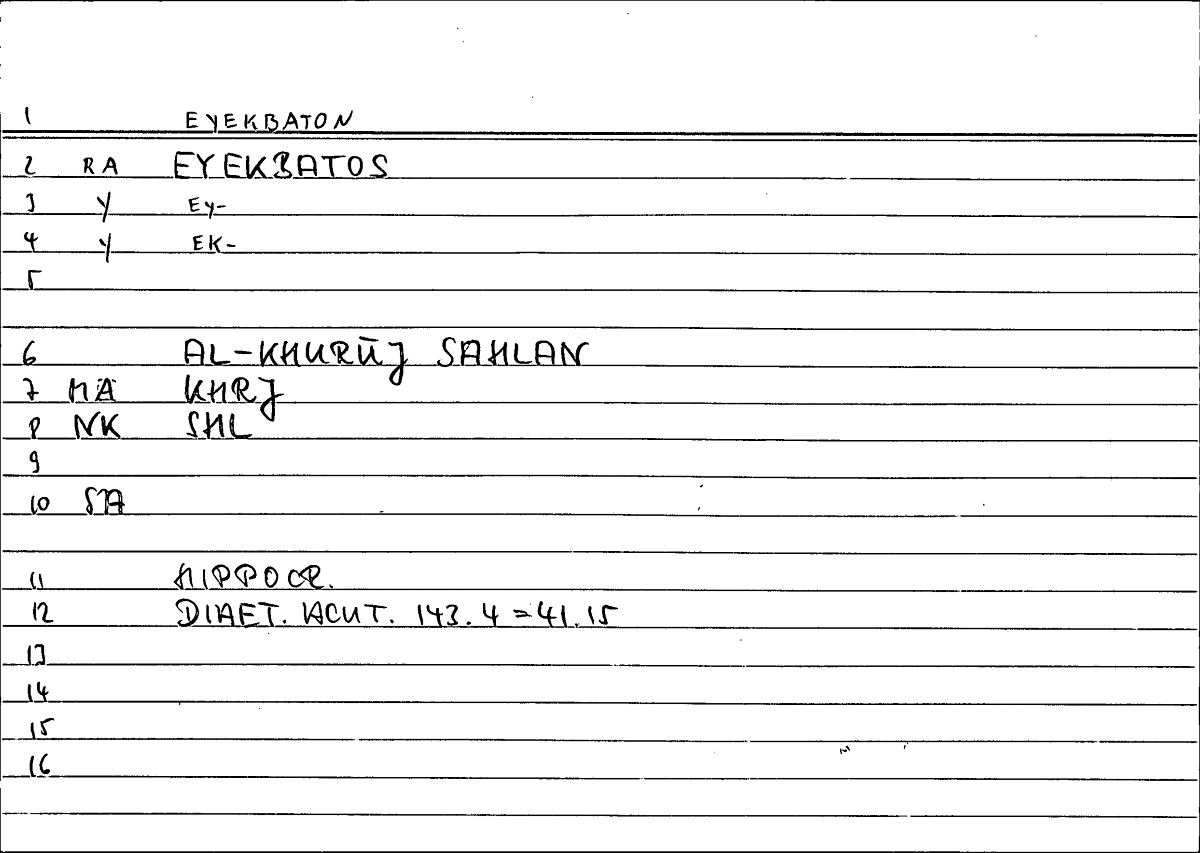 1 EYEKBATON
2 RA EYEKBATOS
3 Y Ey-
4 Y EK-
5
6 AL-KHURŪJ SAHLAN
7 MA KHRJ
8 NK SHL
9
10 STA
11 HIPPOCR.
12 DIAET. ACUT. 143.4 = 41.15
13
14
15
16